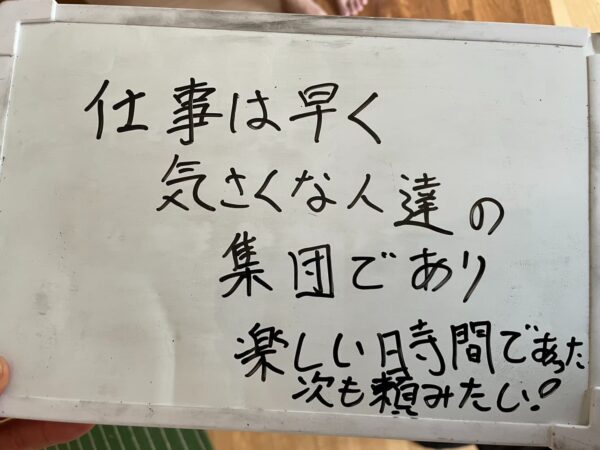 仕事は早く
気さくな人達の
集団であり
楽しい時間であった
次も頼みたい!